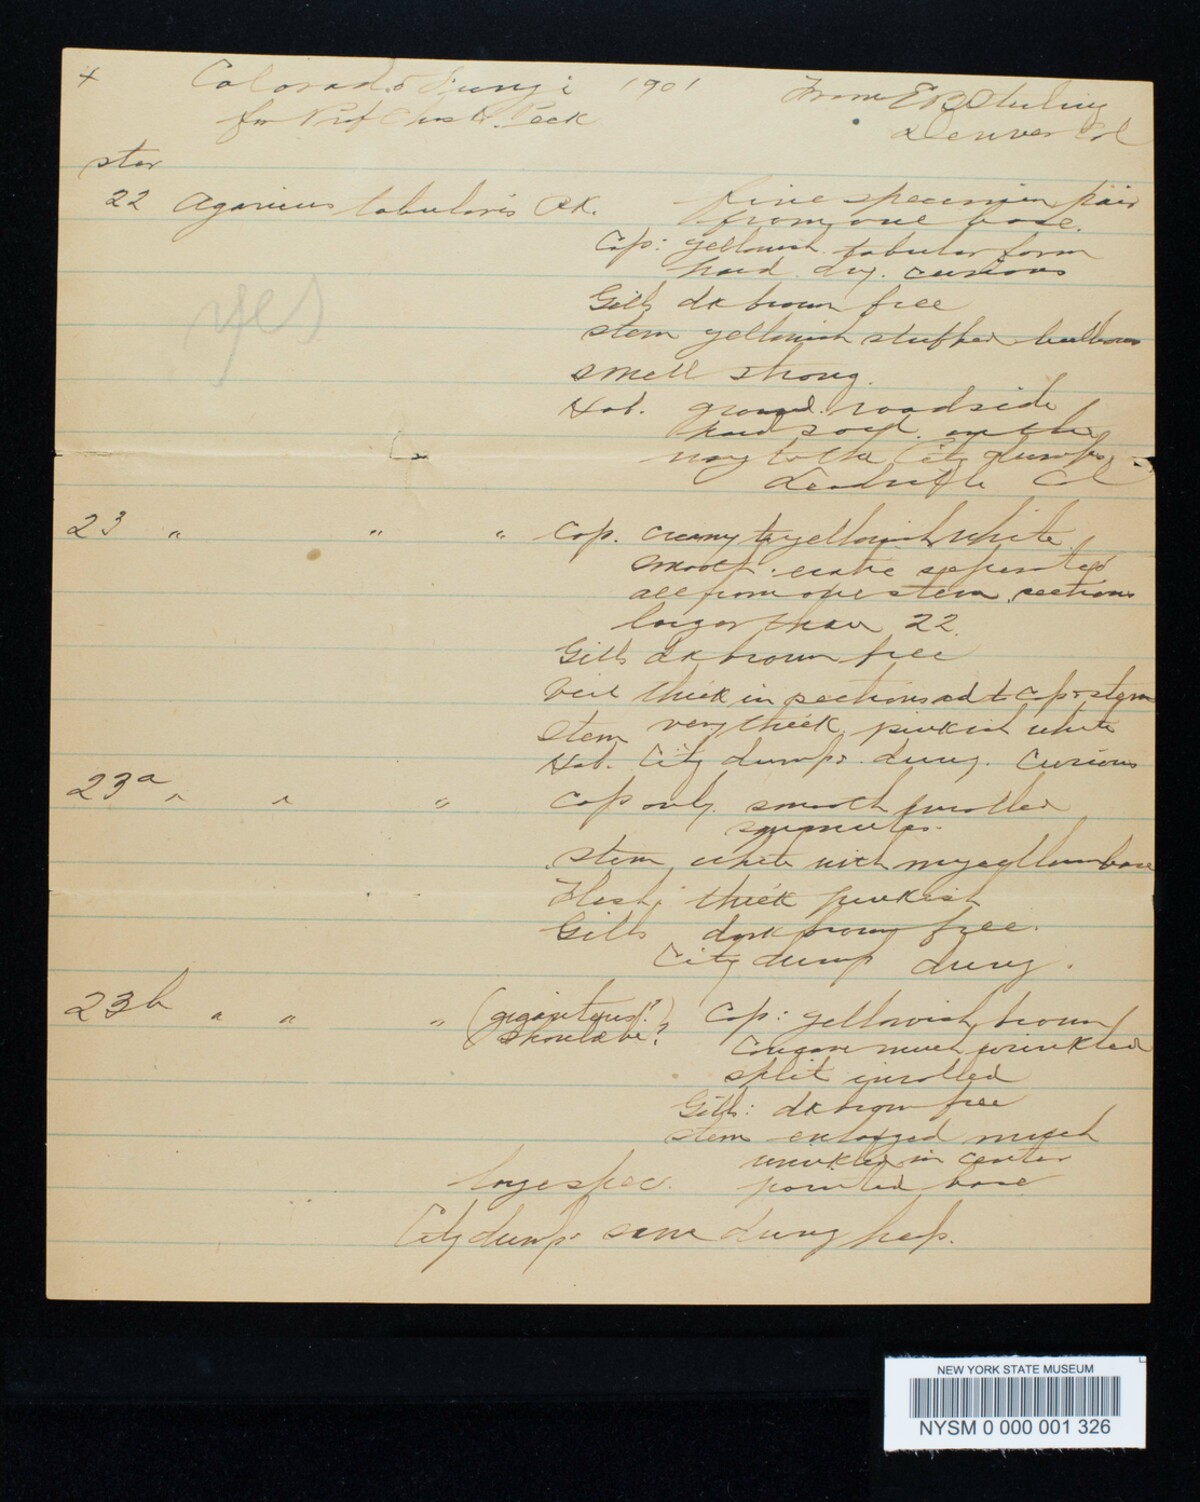 x Colorado Fungi 1901 From E B Sterling
for Prof Chas H. Peck Denver Col
star
22 Agaricus tabularis Pk. fine specimen pair
from one base.
Cap: yellowish tabular form
hard dry. curious
Gills dk brown free
stem yellowish stuffed bulbous
smell strong.
yes
Hab. ground roadside
hard soil. on the
way to the City dumps
Leadville Col
23 " " " Cap. creamy to yellowish white
smooth.
all from one stem. sections
larger than 22.
Gills dk brown free
Veil thick in sections adt Cap & stem
Stem very thick pinkish white
Hab. City dumps. dung. Curious
23a " " " Cap only. smooth inrolled
stem white with mycellum base
Flesh: thick pinkish
Gills dark brown free.
City dump dung.
23b " " " (giganteus!?) Cap: yellowish brown
should be? much wrinkled
split inrolled
Gills: dk brown free
stem enlarged much
wrinkled in center
large spec. pointed base
City dump. same dung heap.
NEW YORK STATE MUSEUM
NYSM 0 000 001 326